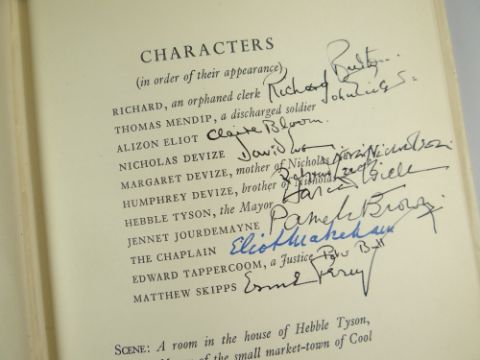 CHARACTERS
(in order of their appearance)
RICHARD, an orphaned clerk Richard
THOMAS MENDIP, a discharged soldier
ALIZON ELIOT Claire Bloom.
NICHOLAS DEVIZE David
MARGARET DEVIZE, mother of Nicholas Nora Nicholson
HUMPHREY DEVIZE, brother of Nicholas
HEBBLE TYSON, the Mayor
JENNET JOURDEMAYNE Pamela Brown
THE CHAPLAIN Eliot Makeham
EDWARD TAPPERCOOM, a Justice Peter Bull
MATTHEW SKIPPS Esmé Percy
SCENE: A room in the house of Hebble Tyson,
of the small market-town of Cool